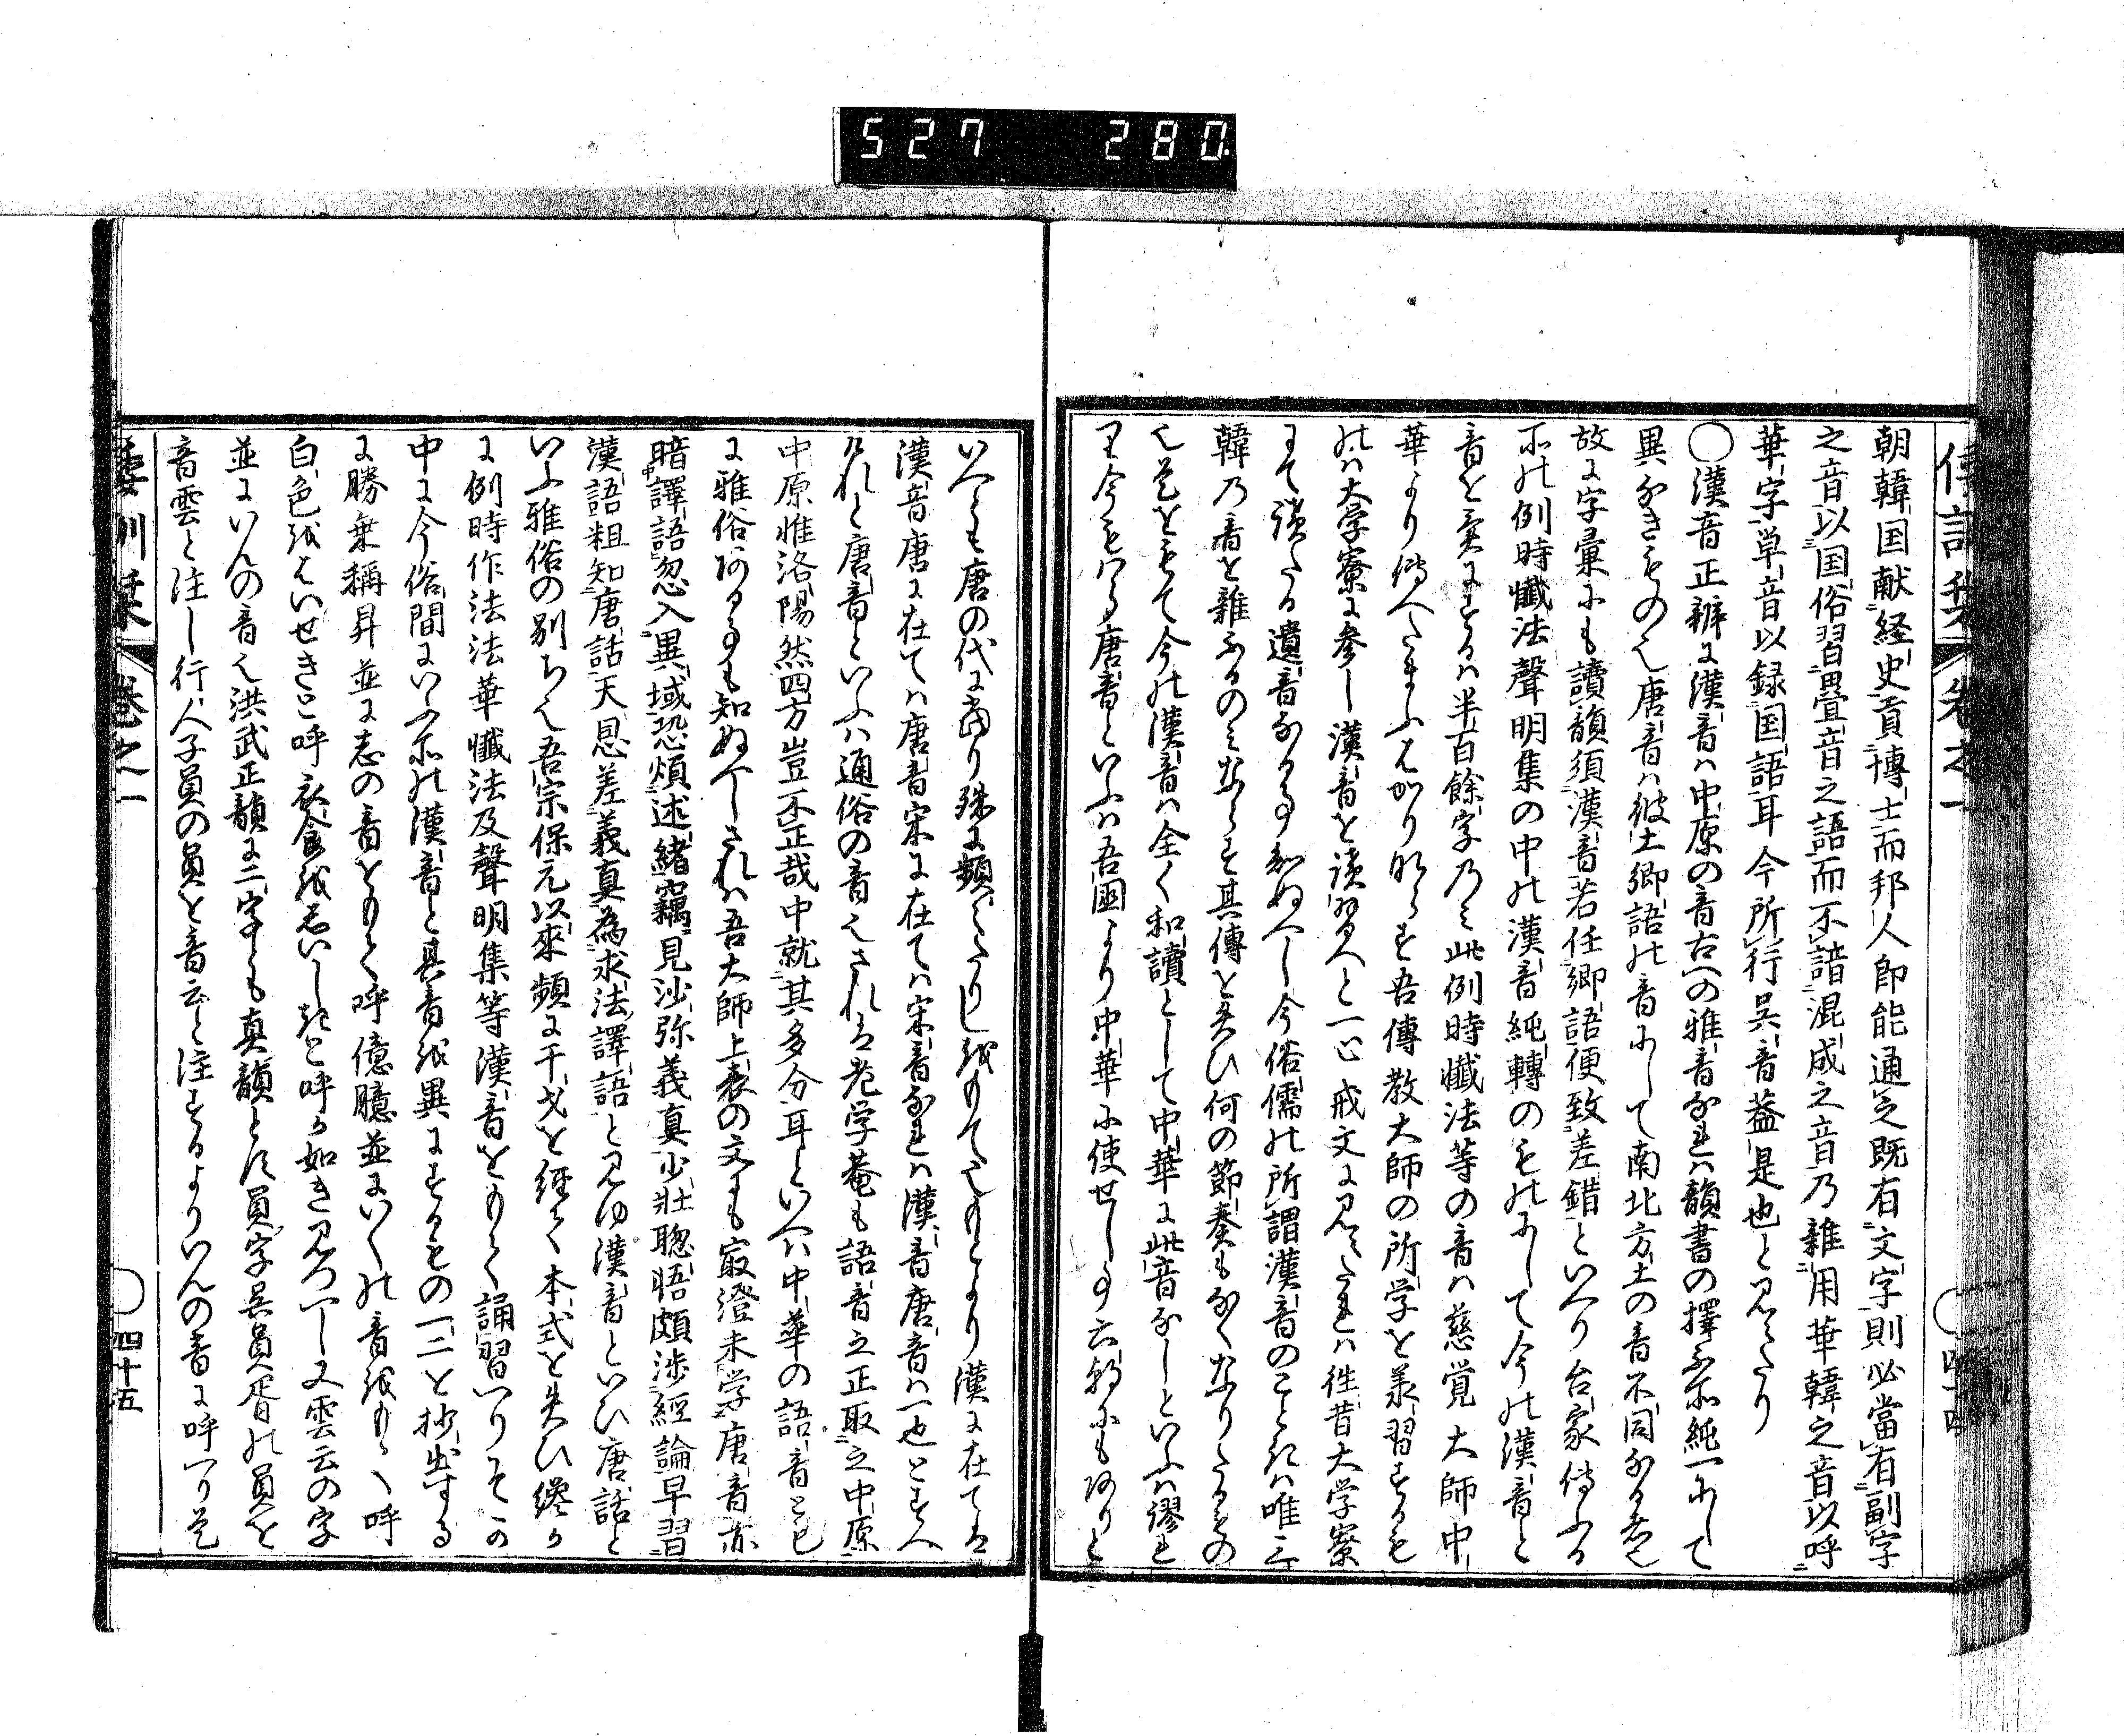 527 280
朝韓国献経史貢博士而邦人即能通之既有文字則必當有副字
之音以国俗習畳音之語而不諳混成之音乃雜用華韓之音以呼
華字単音以録国語耳今所行呉音葢是也と見えたり
◯漢音正辨に漢音は中原の音古への雅音なれは韻書の擇ふ所純一にして
異なきもの也唐音は彼土郷語の音にして南北方土の音不同なる者也
故に字彙にも讀韻須漢音若任郷語便致差錯といへり台家傳ふる
所の例時懺法聲明集の中の漢音純轉のものにして今の漢音と
音を異にするは半百餘字のみ此例時懺法等の音は慈覚大師中
華より傳へたまふはかりならす吾傳教大師の所学を兼習するも
のは大学寮に参し漢音を読習へと一心戒文に見えたれは徃昔大学寮
にて讀たる遺音なる事知ぬへし今俗儒の所謂漢音のことは唯三
韓乃音を雜ふるのみならす其傳を失ひ何の節奏もなくなりたるもの
也是をもて今の漢音は全く和讀として中華に此音なしといふは謬れ
り今もはら唐音といふは吾國より中華に使せし事六朝にもありと
いへとも唐の代に當り殊に頻くたりしをもて也もとより漢に在ては
漢音唐に在ては唐音宋に在ては宋音なれは漢音唐音は一也とすへ
けれと唐音といふは通俗の音也されは老学菴も語音之正取之中原
中原惟洛陽然四方豈不正哉中就其多分耳といへは中華の語音とも
に雅俗ある事も知ぬへしされは吾大師上表の文にも最澄未学唐音亦
暗譯語忽入異域恐煩述緒竊見沙弥義真少壯聡悟頗渉經論早習
漢語粗知唐話天恩差義真為求法譯語と見ゆ漢音といひ唐話と
いふ雅俗の別ち也吾宗保元以來頻に干戈を經て本式を失ひ纔か
に例時作法法華懺法及聲明集等漢音をもて誦習へりその
中に今俗間にいふ所の漢音と其音を異にするもの一二を抄出する
に勝乗稱昇並に志の音をもて呼億臆並にいくの音をもて呼
白色をはいせきと呼衣食をゑいしきと呼か如き見つへし又雲云の字
並にいんの音也洪武正韻に二字とも真韻とす員字呉員胥の員を
音雲と注し行人子員の員を音云と注するよりいんの音に呼へり是
倭訓栞 巻之一 四十五